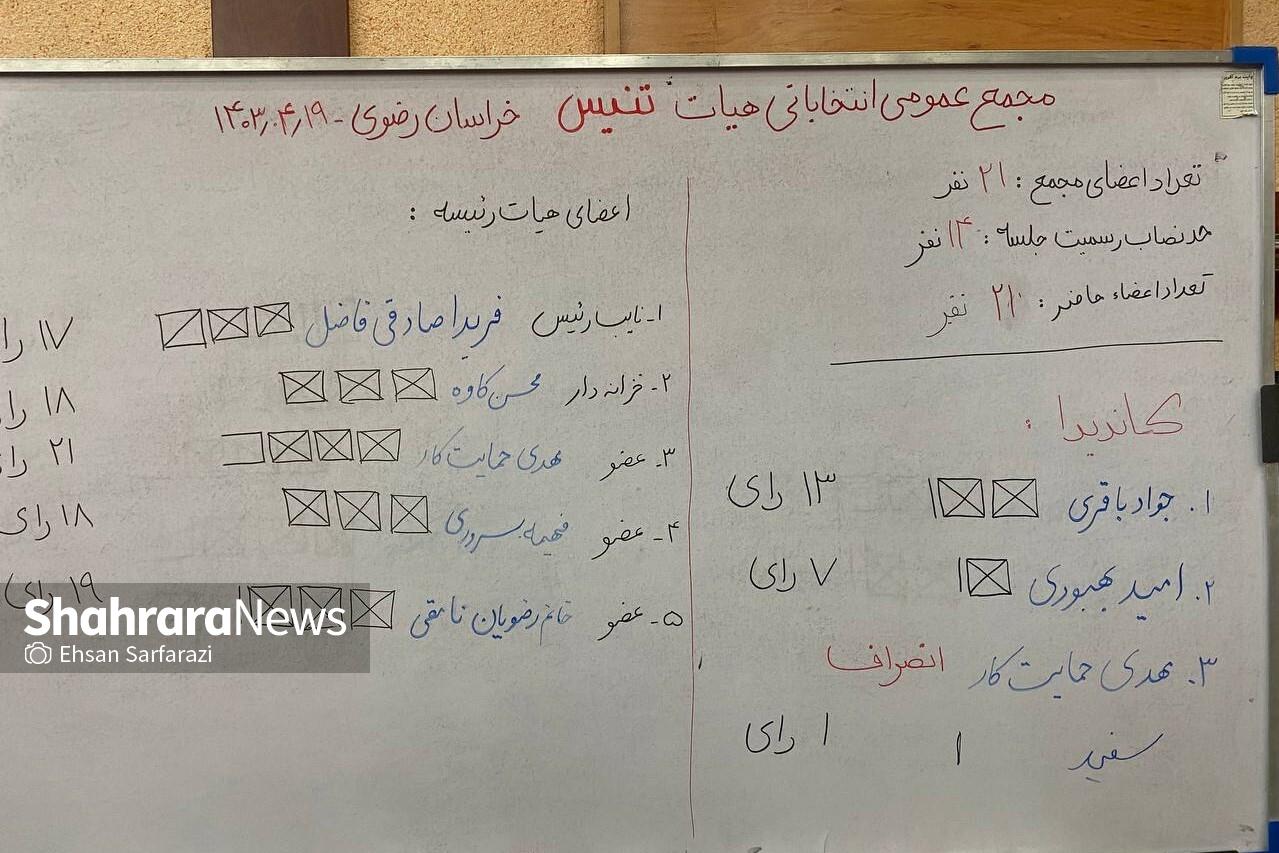 مجمع عمومی انتخاباتی هیات تنیس خراسان رضوی - ۱۴۰۳٫۰۴٫۱۹
تعداد اعضای مجمع : ۲۱ نفر
حد نصاب رسمیت جلسه : ۱۴ نفر
تعداد اعضاء حاضر : ۲۱ نفر
کاندیدا :
۱. جواد باقری ۱۳ رای
۲. امید بهبودی ۷ رای
۳. مهدی حمایت کار انصراف
سفید ۱ ۱ رای
اعضای هیات رئیسه :
۱- نایب رئیس فریدا صادقی فاضل ۱۷ را
۲- خزانه دار محسن کاوه ۱۸ رای
۳- عضو مهدی حمایت کار ۲۱ رای
۴- عضو فهیمه سروری ۱۸ رای
۵- عضو خانم رضویان نایقی ۱۹ رای
ShahraraNews
Ehsan Sarfarazi